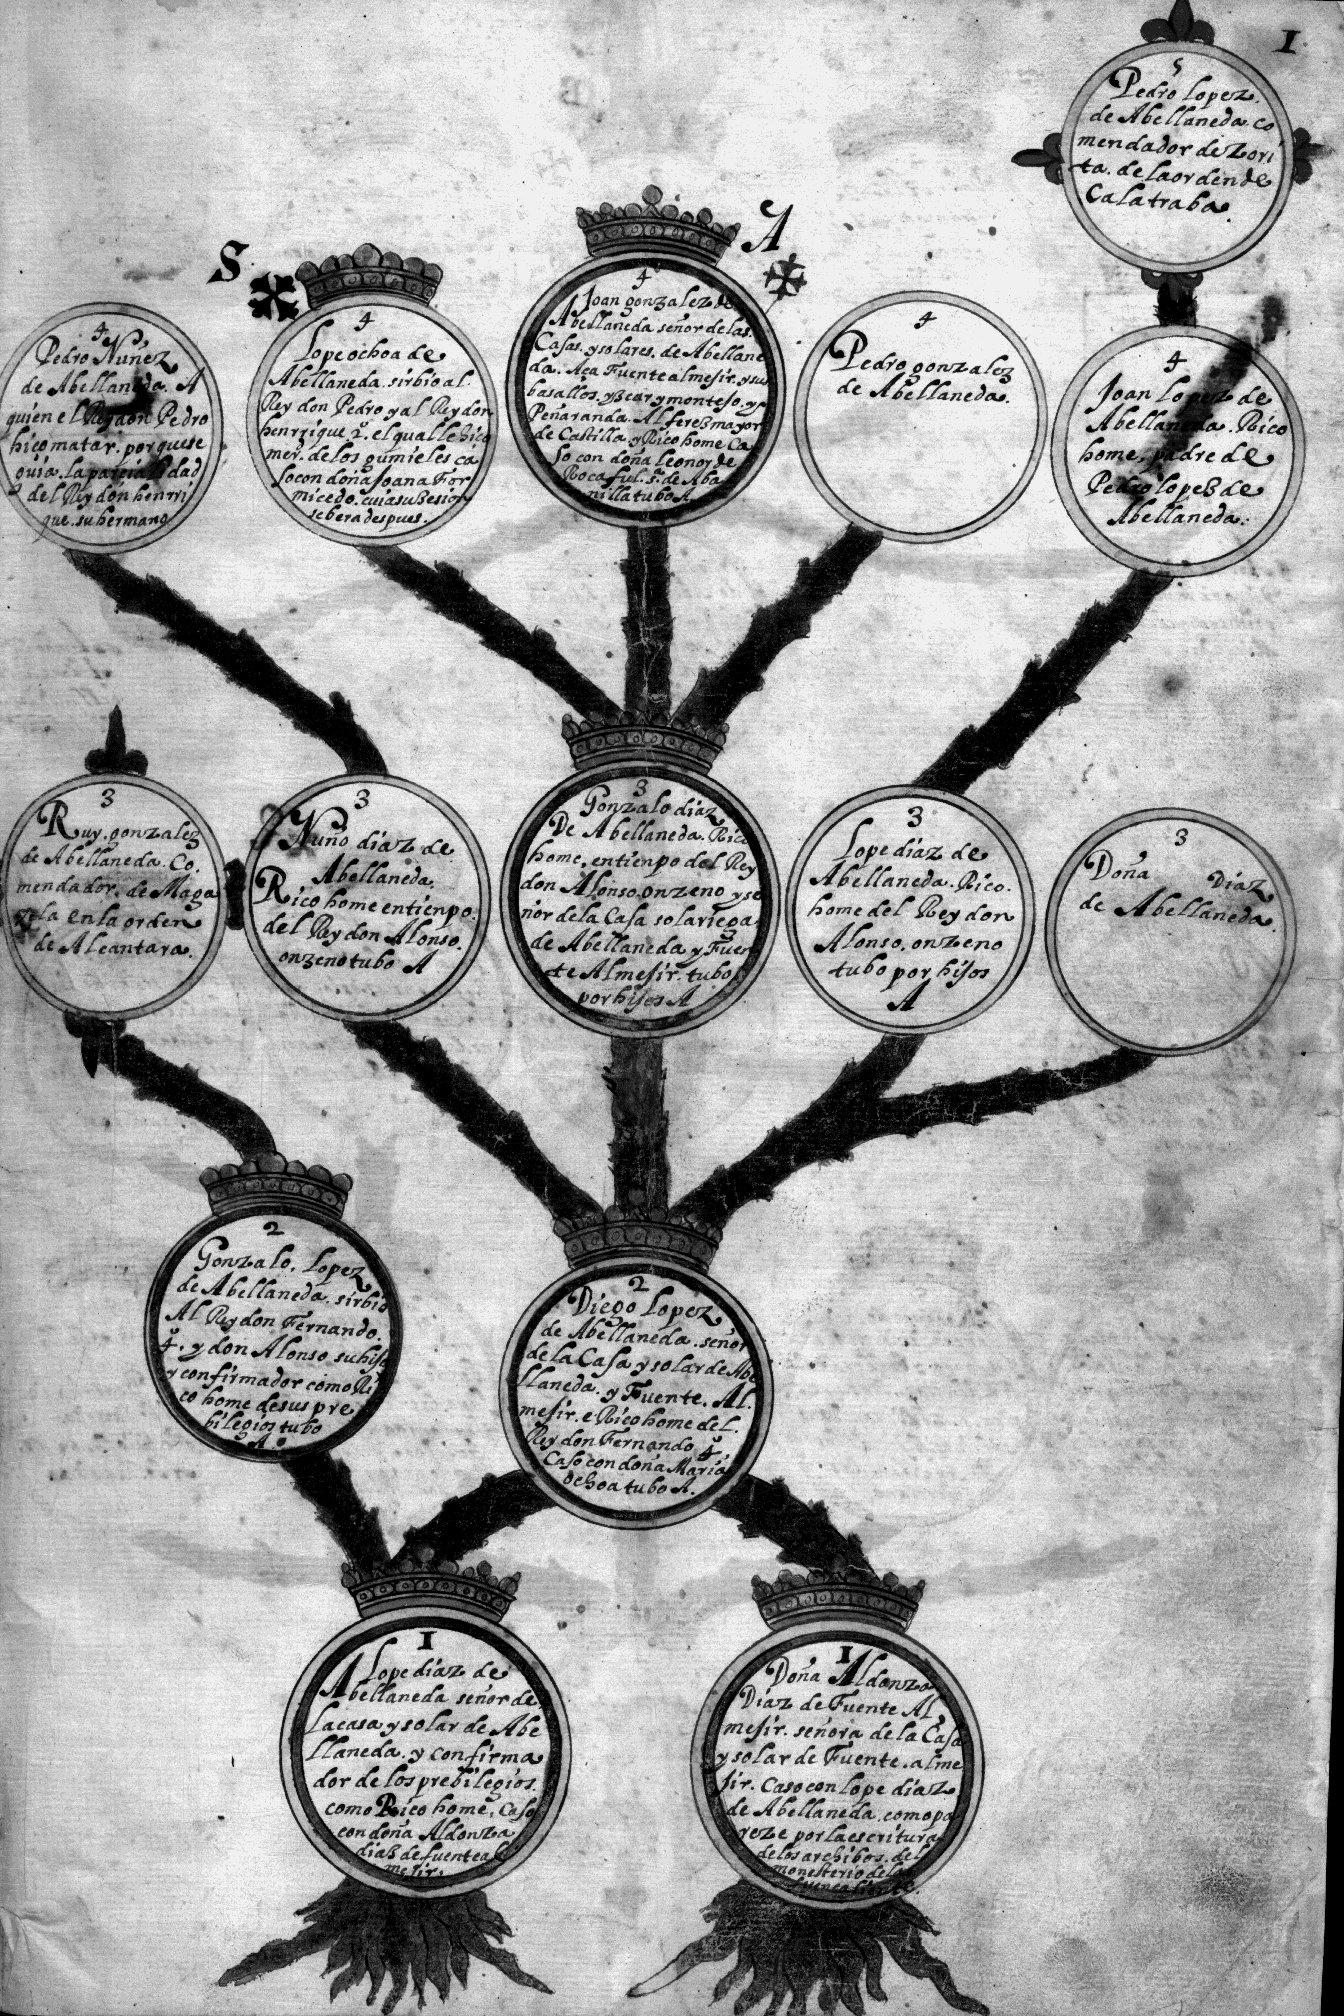 1
5
Pedro lopez.
de Abellaneda. co
mendador de Zori
ta. de laorden de
Calatraba.
S
A
4
Pedro Nuñez
de Abellaneda. A
quien el Rey don Pedro
hiço matar. porque se
guia. la parcialidad
del Rey don henrri
que. su hermano
4
Lope ochoa de
Abellaneda. sirbio al.
Rey don Pedro y al Rey don
henrrique 2. el qual le hiço
mer. de los gumieles ca
so con doña Joana For
micedo. cuia subzesion
sebera despues.
4
Joan gonzalez de
Abellaneda señor de las.
Casas. y solares. de Abellane
da. Aça Fuente almesir. y sus
basallos. y Bcar y montejo. y
Peñaranda. Alferez mayor
de Castilla y Rico home Ca
so con doña leonor de
Rocaful. s.ª de Aba
nilla tubo A
4
Pedro gonzalez
de Abellaneda.
4
Joan Lopez de
Abellaneda. Rico
home. padre de
Pedro lopez de
Abellaneda.
3
Ruy. gonzalez
de Abellaneda. Co.
mendador. de Maga
zela en la orden
de Alcantara.
3
Nuño diaz de
Abellaneda.
Rico home en tienpo.
del Rey don Alonso.
onzeno tubo A
3
Gonzalo diaz
De Abellaneda. Rico
home. en tienpo del Rey
don Alonso. onzeno y se
ñor de la Casa solariega
de Abellaneda y Fuen
te Almesir. tubo
por hijos A
3
Lope diaz de
Abellaneda. Rico.
home del Rey don
Alonso. onzeno
tubo por hijos
A
3
Doña Diaz
de Abellaneda.
2
Gonzalo. Lopez
de Abellaneda. sirbio
Al Rey don Fernando.
4. y don Alonso su hijo
y confirmador como Ri
co home de sus pre
bilegios tubo
A
2
Diego Lopez
de Abellaneda. señor
de la Casa y solar de Abe
llaneda. y Fuente. Al.
mesir. e Rico home del.
Rey don Fernando 4
Caso con doña Maria
ochoa tubo A.
1
Lope diaz de
Abellaneda señor de
la casa y solar de Abe
llaneda. y confirma
dor de los prebilegios.
como Rico home, Caso
con doña Aldonza
diaz de fuente al
mesir.
1
Doña Aldonza
Diaz de Fuente Al
mesir. señora de la Casa
y solar de Fuente. alme
sir. Caso con lope diaz
de Abellaneda. como pa
reze por la escritura
de los archibos. del
monesterio de la